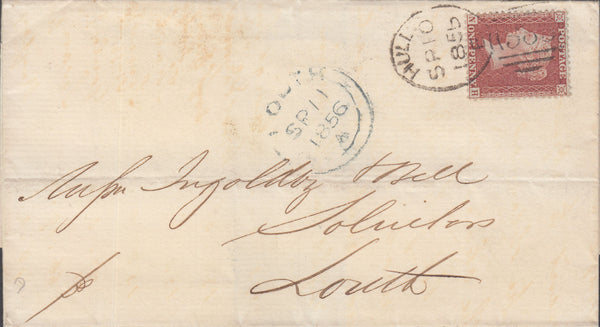 HULL
SP 10
1856
POSTAGE
ONE PENNY
LOUTH
SP 11
1856
A
Messrs Ingoldby & Bell
Solicitors
Louth